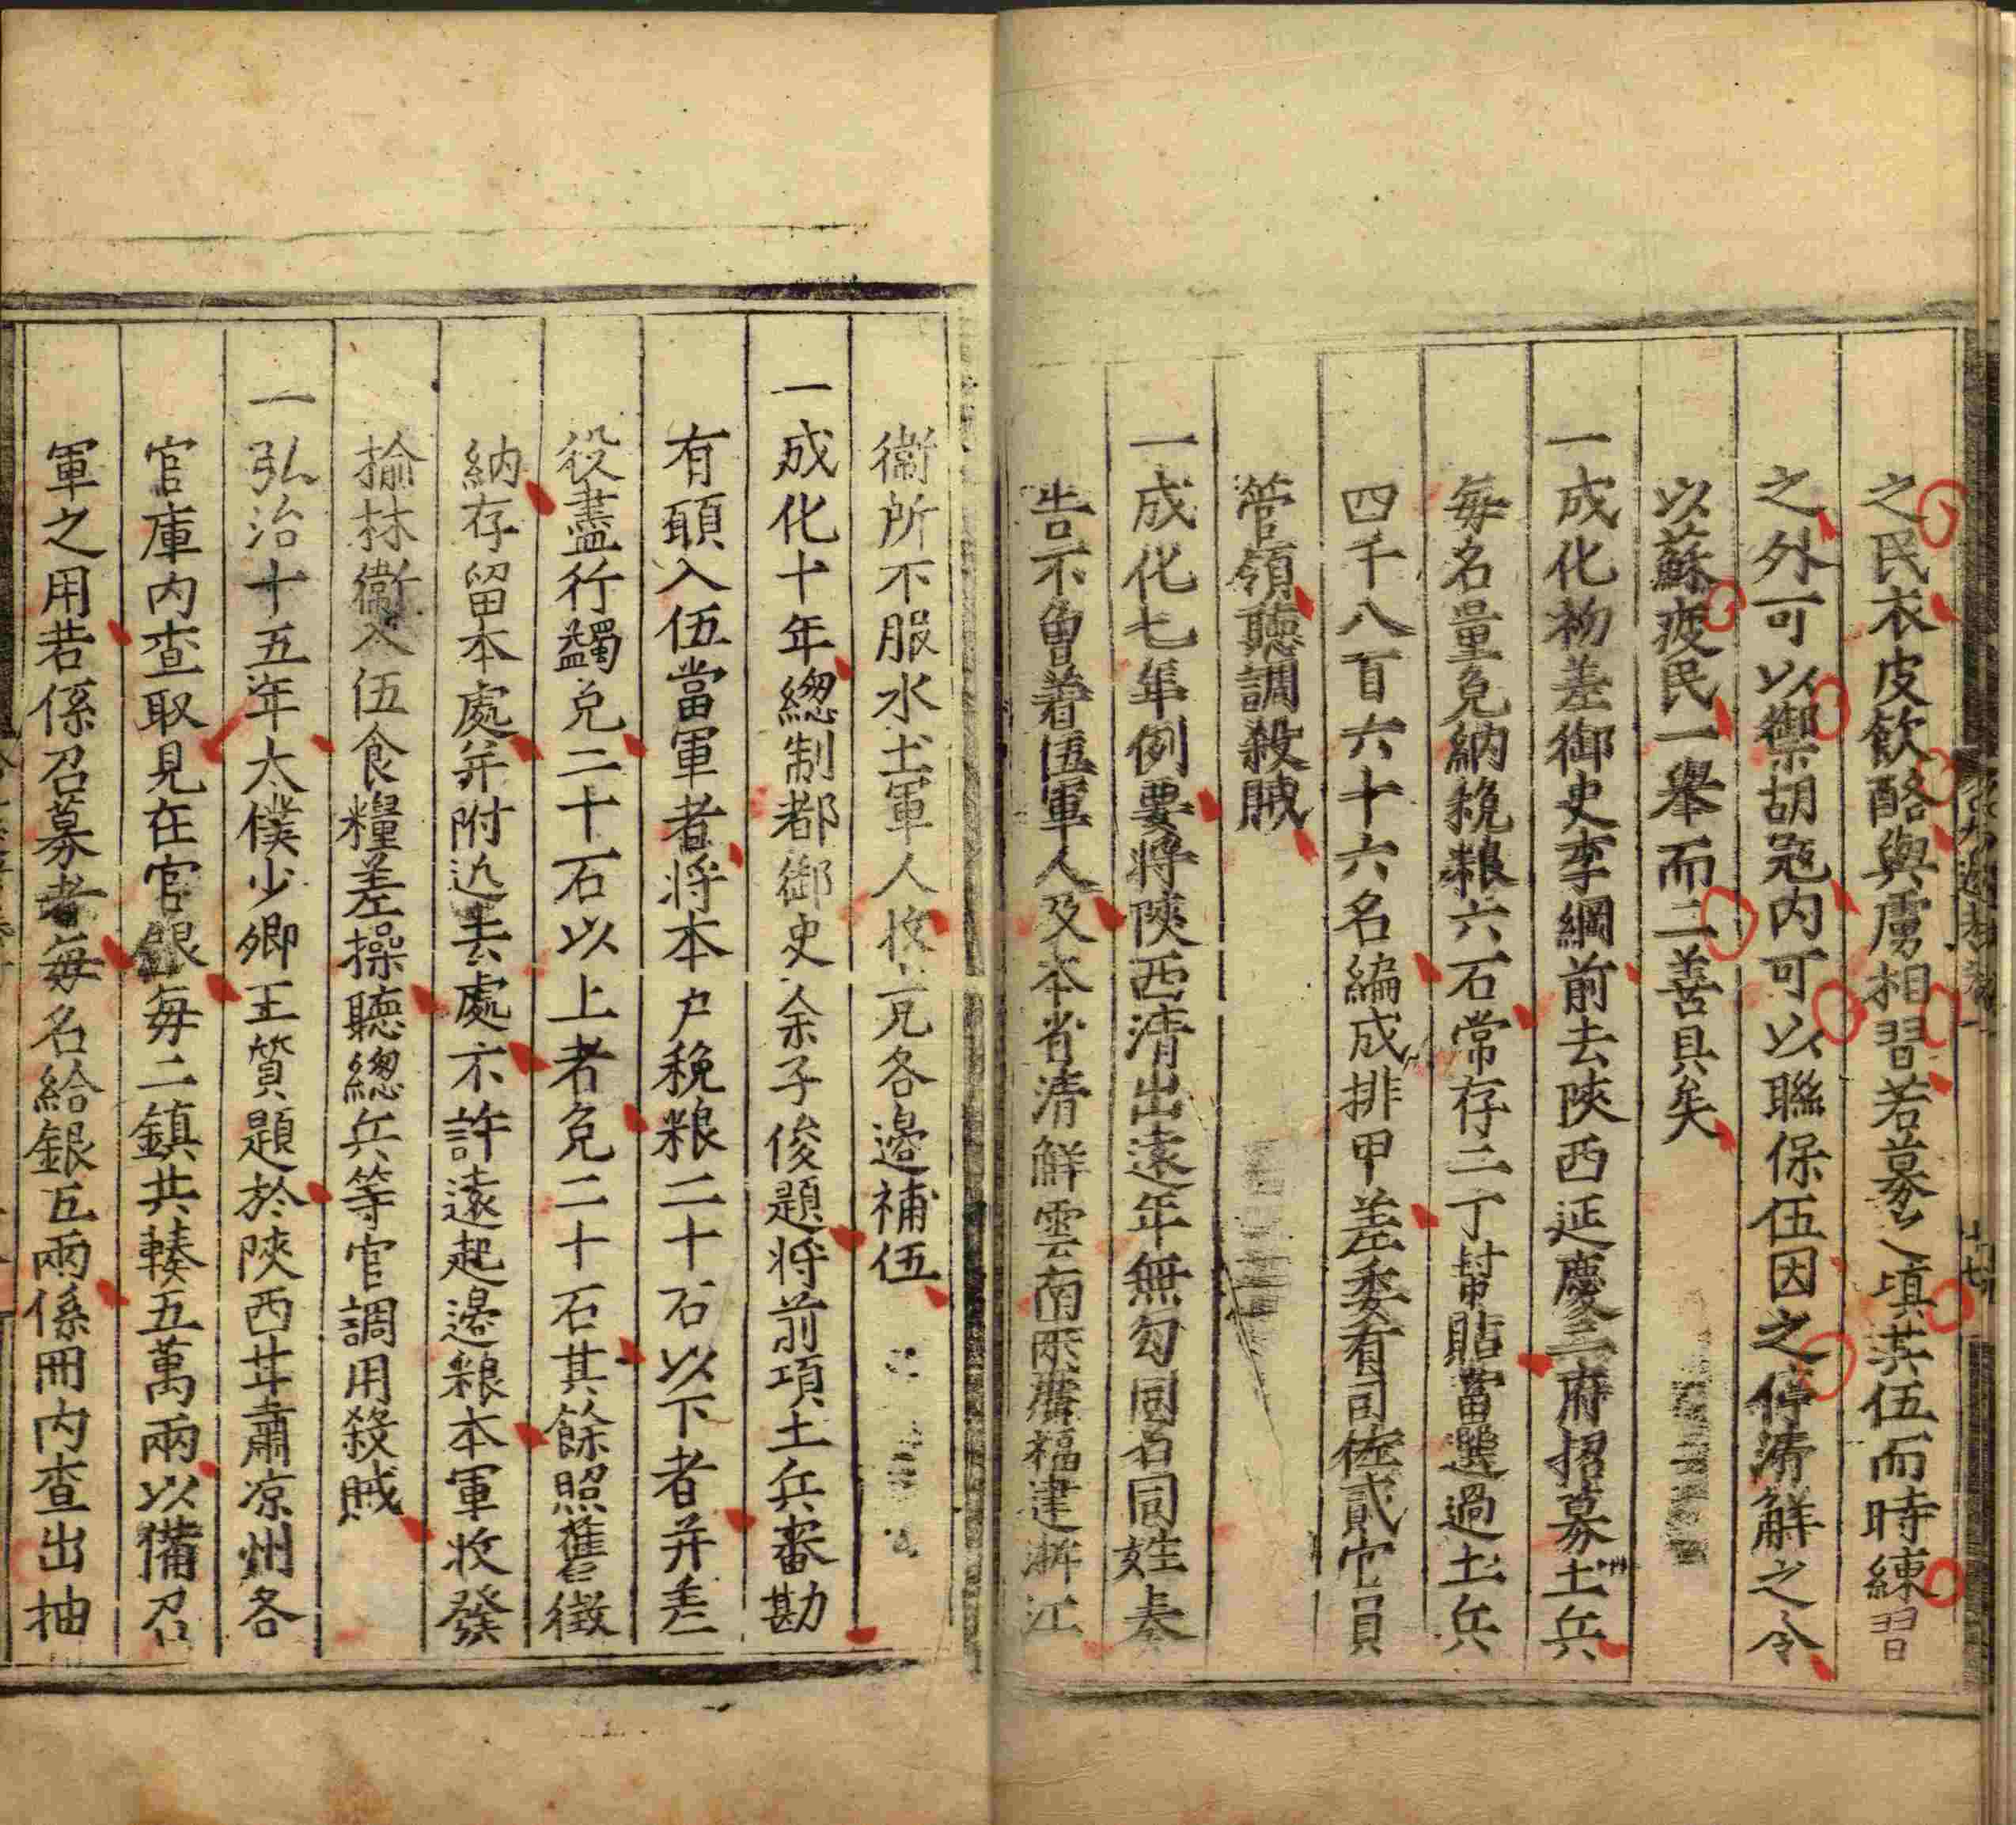 之民衣皮飲酪與虜相習若募之填其伍而時練習
之外可以禦胡冦内可以聯保伍因之停清解之令
以蘇疲民一舉而二善具矣
一成化初差御史李綱前去陝西延慶三府招募土兵
每名量免納稅粮六石常存二丁幫貼當選過土兵
四千八百六十六名編成排甲差委有司佐貳官員
管領聽調殺賊
一成化七年例要將陝西清出遠年無勾同名同姓奏
告不曾着伍軍人及本省清解雲南兩廣福建浙江
衞所不服水土軍人收充各邉補伍
一成化十年緫制都御史余子俊題將前項土兵審勘
有願入伍當軍者將本户稅粮二十石以下者并差
役盡行蠲免二十石以上者免二十石其餘照舊徵
納存留本處并附近去處不許遠起邉粮本軍收發
榆林衞入伍食糧差操聽緫兵等官調用殺賊
一弘治十五年太僕少卿王質題於陝西甘肅凉州各
官庫内查取見在官銀每二鎮共輳五萬兩以備召
軍之用若係召募者每名給銀五兩係冊内查出抽